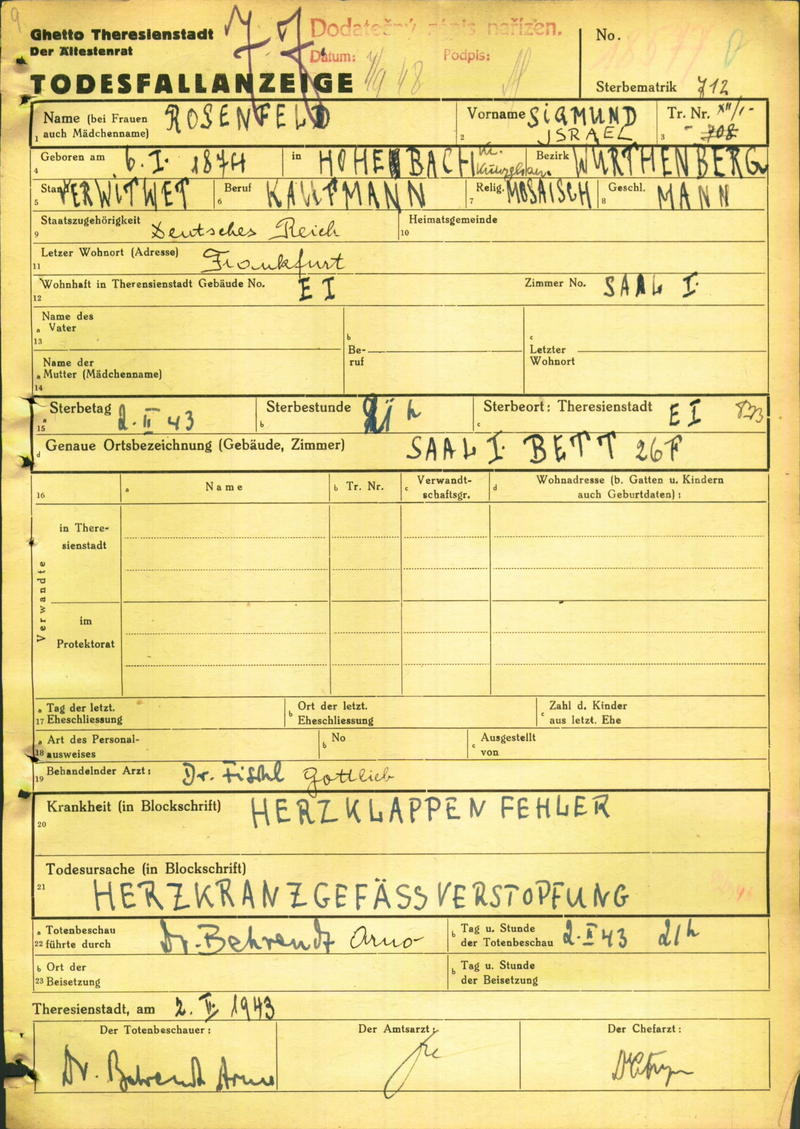 Ghetto Theresienstadt
Der Ältestenrat
Dodatečný zápis nařízen.
Datum: 48 Podpis:
No.
TODESFALLANZEIGE
Sterbematrik 712
Name (bei Frauen auch Mädchenname) ROSENFELD
1
Vorname SIGMUND
ISRAEL
2
Tr. Nr. XII/1-
3 - 708
4 Geboren am 6. I. 1874 in HOHENBACH Bezirk WÜRTHENBERG
5 Stand VERWITWET
6 Beruf KAUFMANN
7 Relig. MOSAISCH
8 Geschl. MANN
9 Staatszugehörigkeit Deutsches Reich
10 Heimatsgemeinde
11 Letzer Wohnort (Adresse) Frankfurt
12 Wohnhaft in Theresienstadt Gebäude No. E I Zimmer No. SAAL I.
13 a Name des Vater
b Beruf
c Letzter Wohnort
14 a Name der Mutter (Mädchenname)
15 a Sterbetag 2. II 43
b Sterbestunde 21 h
c Sterbeort: Theresienstadt E I
d Genaue Ortsbezeichnung (Gebäude, Zimmer) SAAL I. BETT 267
16 a Name b Tr. Nr. c Verwandtschaftsgr. d Wohnadresse (b. Gatten u. Kindern auch Geburtdaten):
Verwandte
in Theresienstadt
im Protektorat
17 a Tag der letzt. Eheschliessung
b Ort der letzt. Eheschliessung
c Zahl d. Kinder aus letzt. Ehe
18 a Art des Personalausweises
b No
c Ausgestellt von
19 Behandelnder Arzt: Dr. Fischl Gottlieb
20 Krankheit (in Blockschrift) HERZKLAPPENFEHLER
21 Todesursache (in Blockschrift)
HERZKRANZGEFÄSSVERSTOPFUNG
22 a Totenbeschau führte durch Dr. Behrendt Arno
b Tag u. Stunde der Totenbeschau 2. II 43 21h
23 b Ort der Beisetzung
b Tag u. Stunde der Beisetzung
Theresienstadt, am 2. II. 1943
Der Totenbeschauer: Der Amtsarzt: Der Chefarzt:
Dr. Behrendt Arno